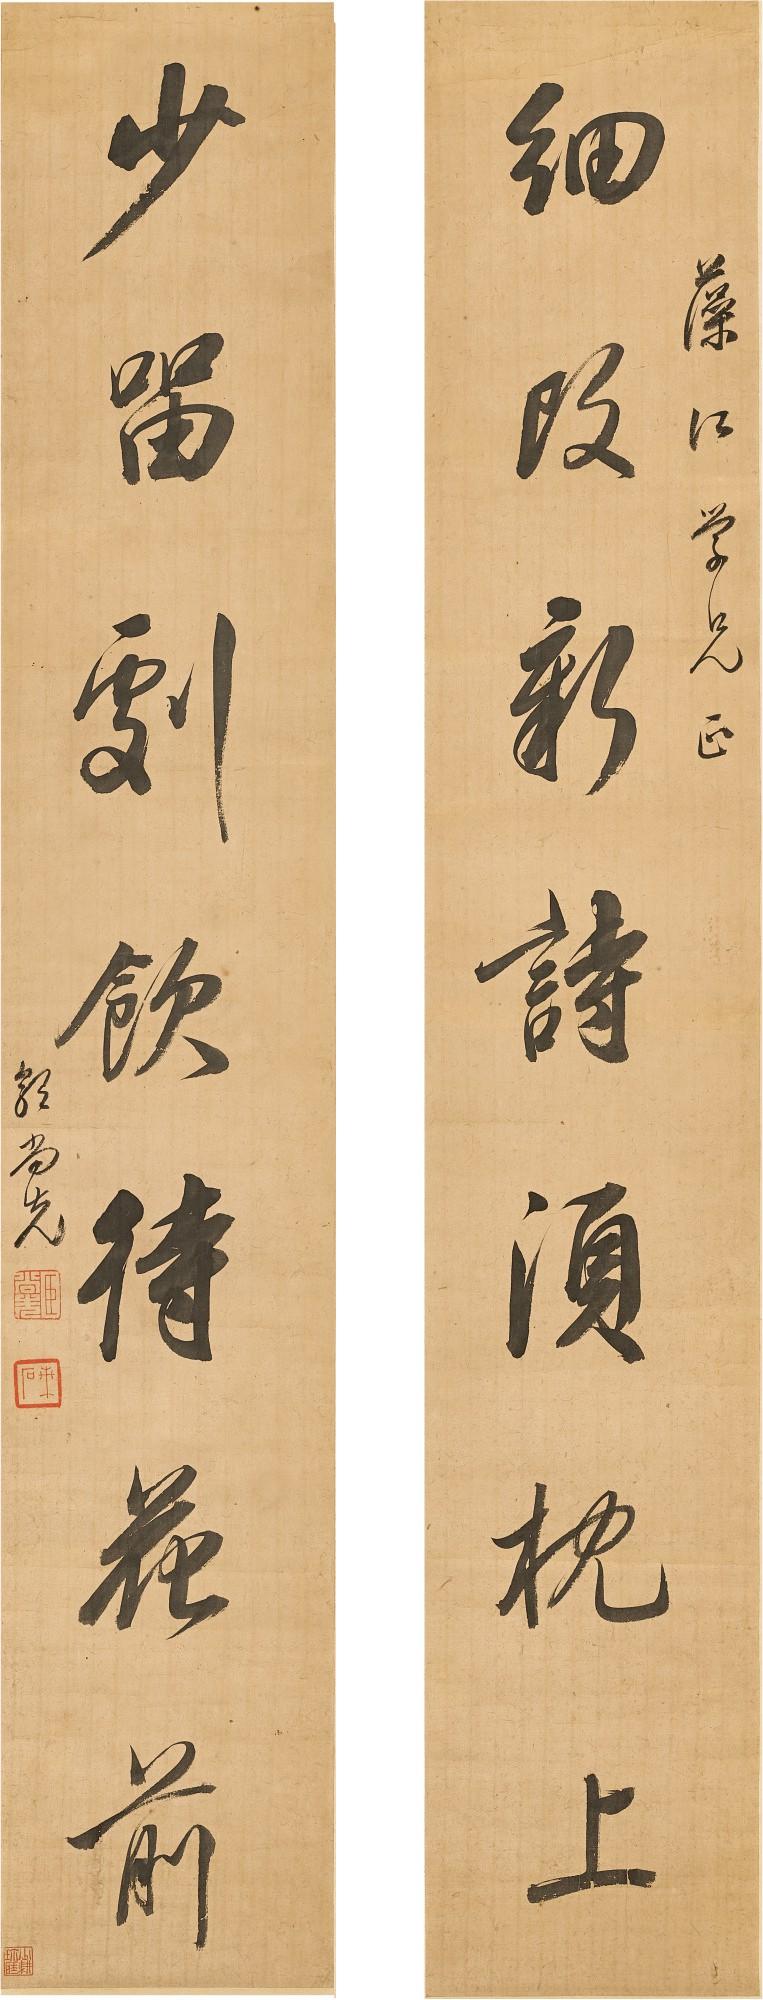 細改新詩須枕上
藻江學兄正
少留劇飲待花前
郭尚先